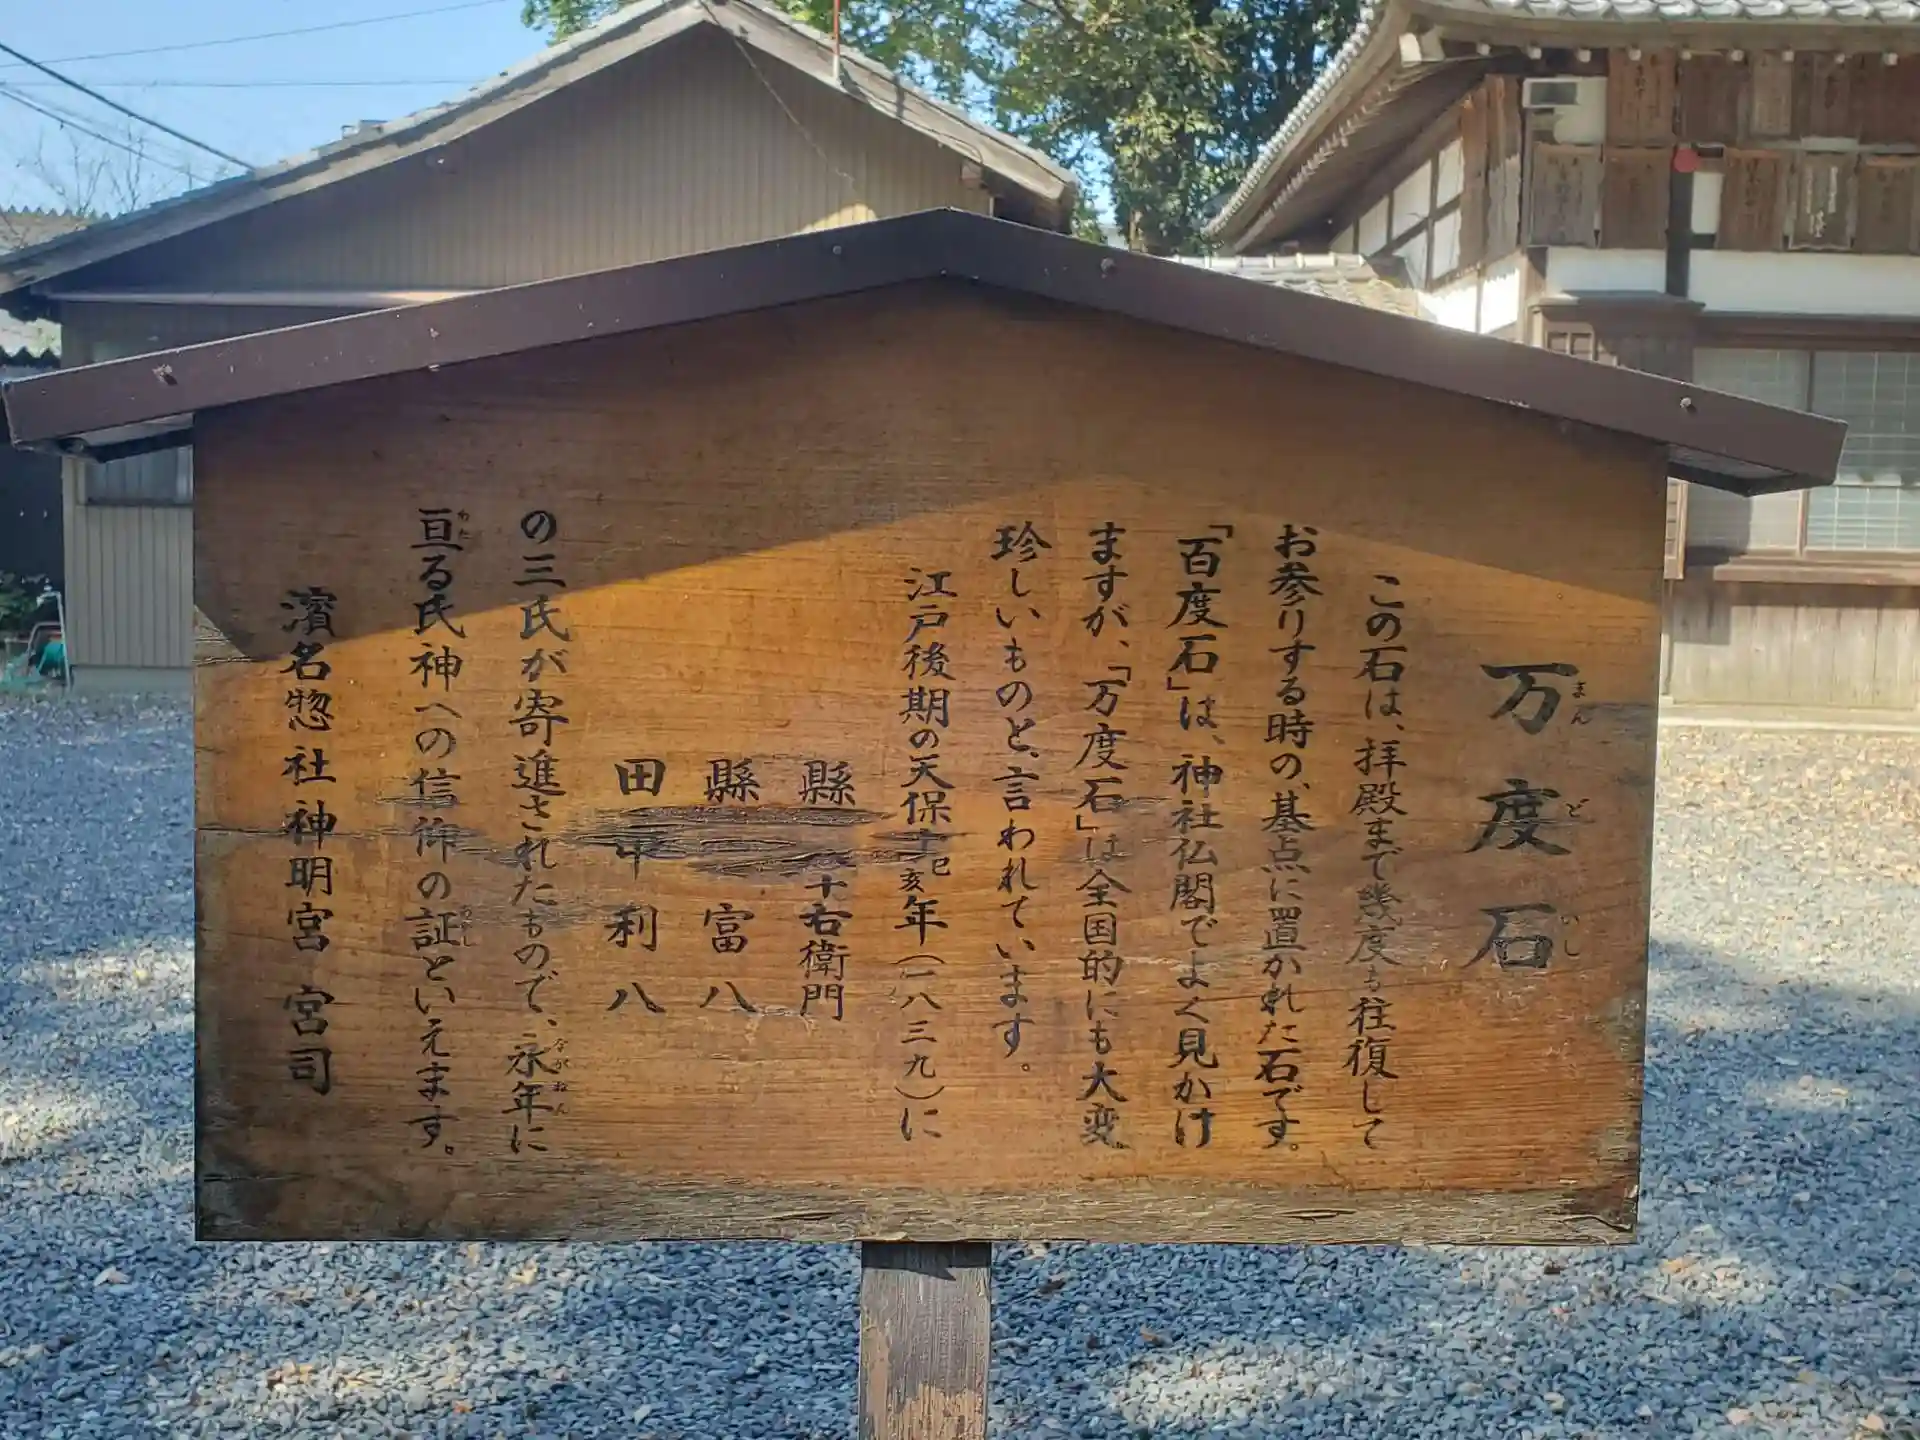 万度石
この石は、拝殿まで幾度も往復して
お参りする時の、基点に置かれた石です。
「百度石」は、神社仏閣でよく見かけ
ますが、「万度石」は全国的にも大変
珍しいものと、言われています。
江戸後期の天保十己亥年(一八三九)に
縣 十右衛門
縣 富八
田中利八
の三氏が寄進されたもので、永年に
亘る氏神への信仰の証といえます。
濱名惣社神明宮 宮司